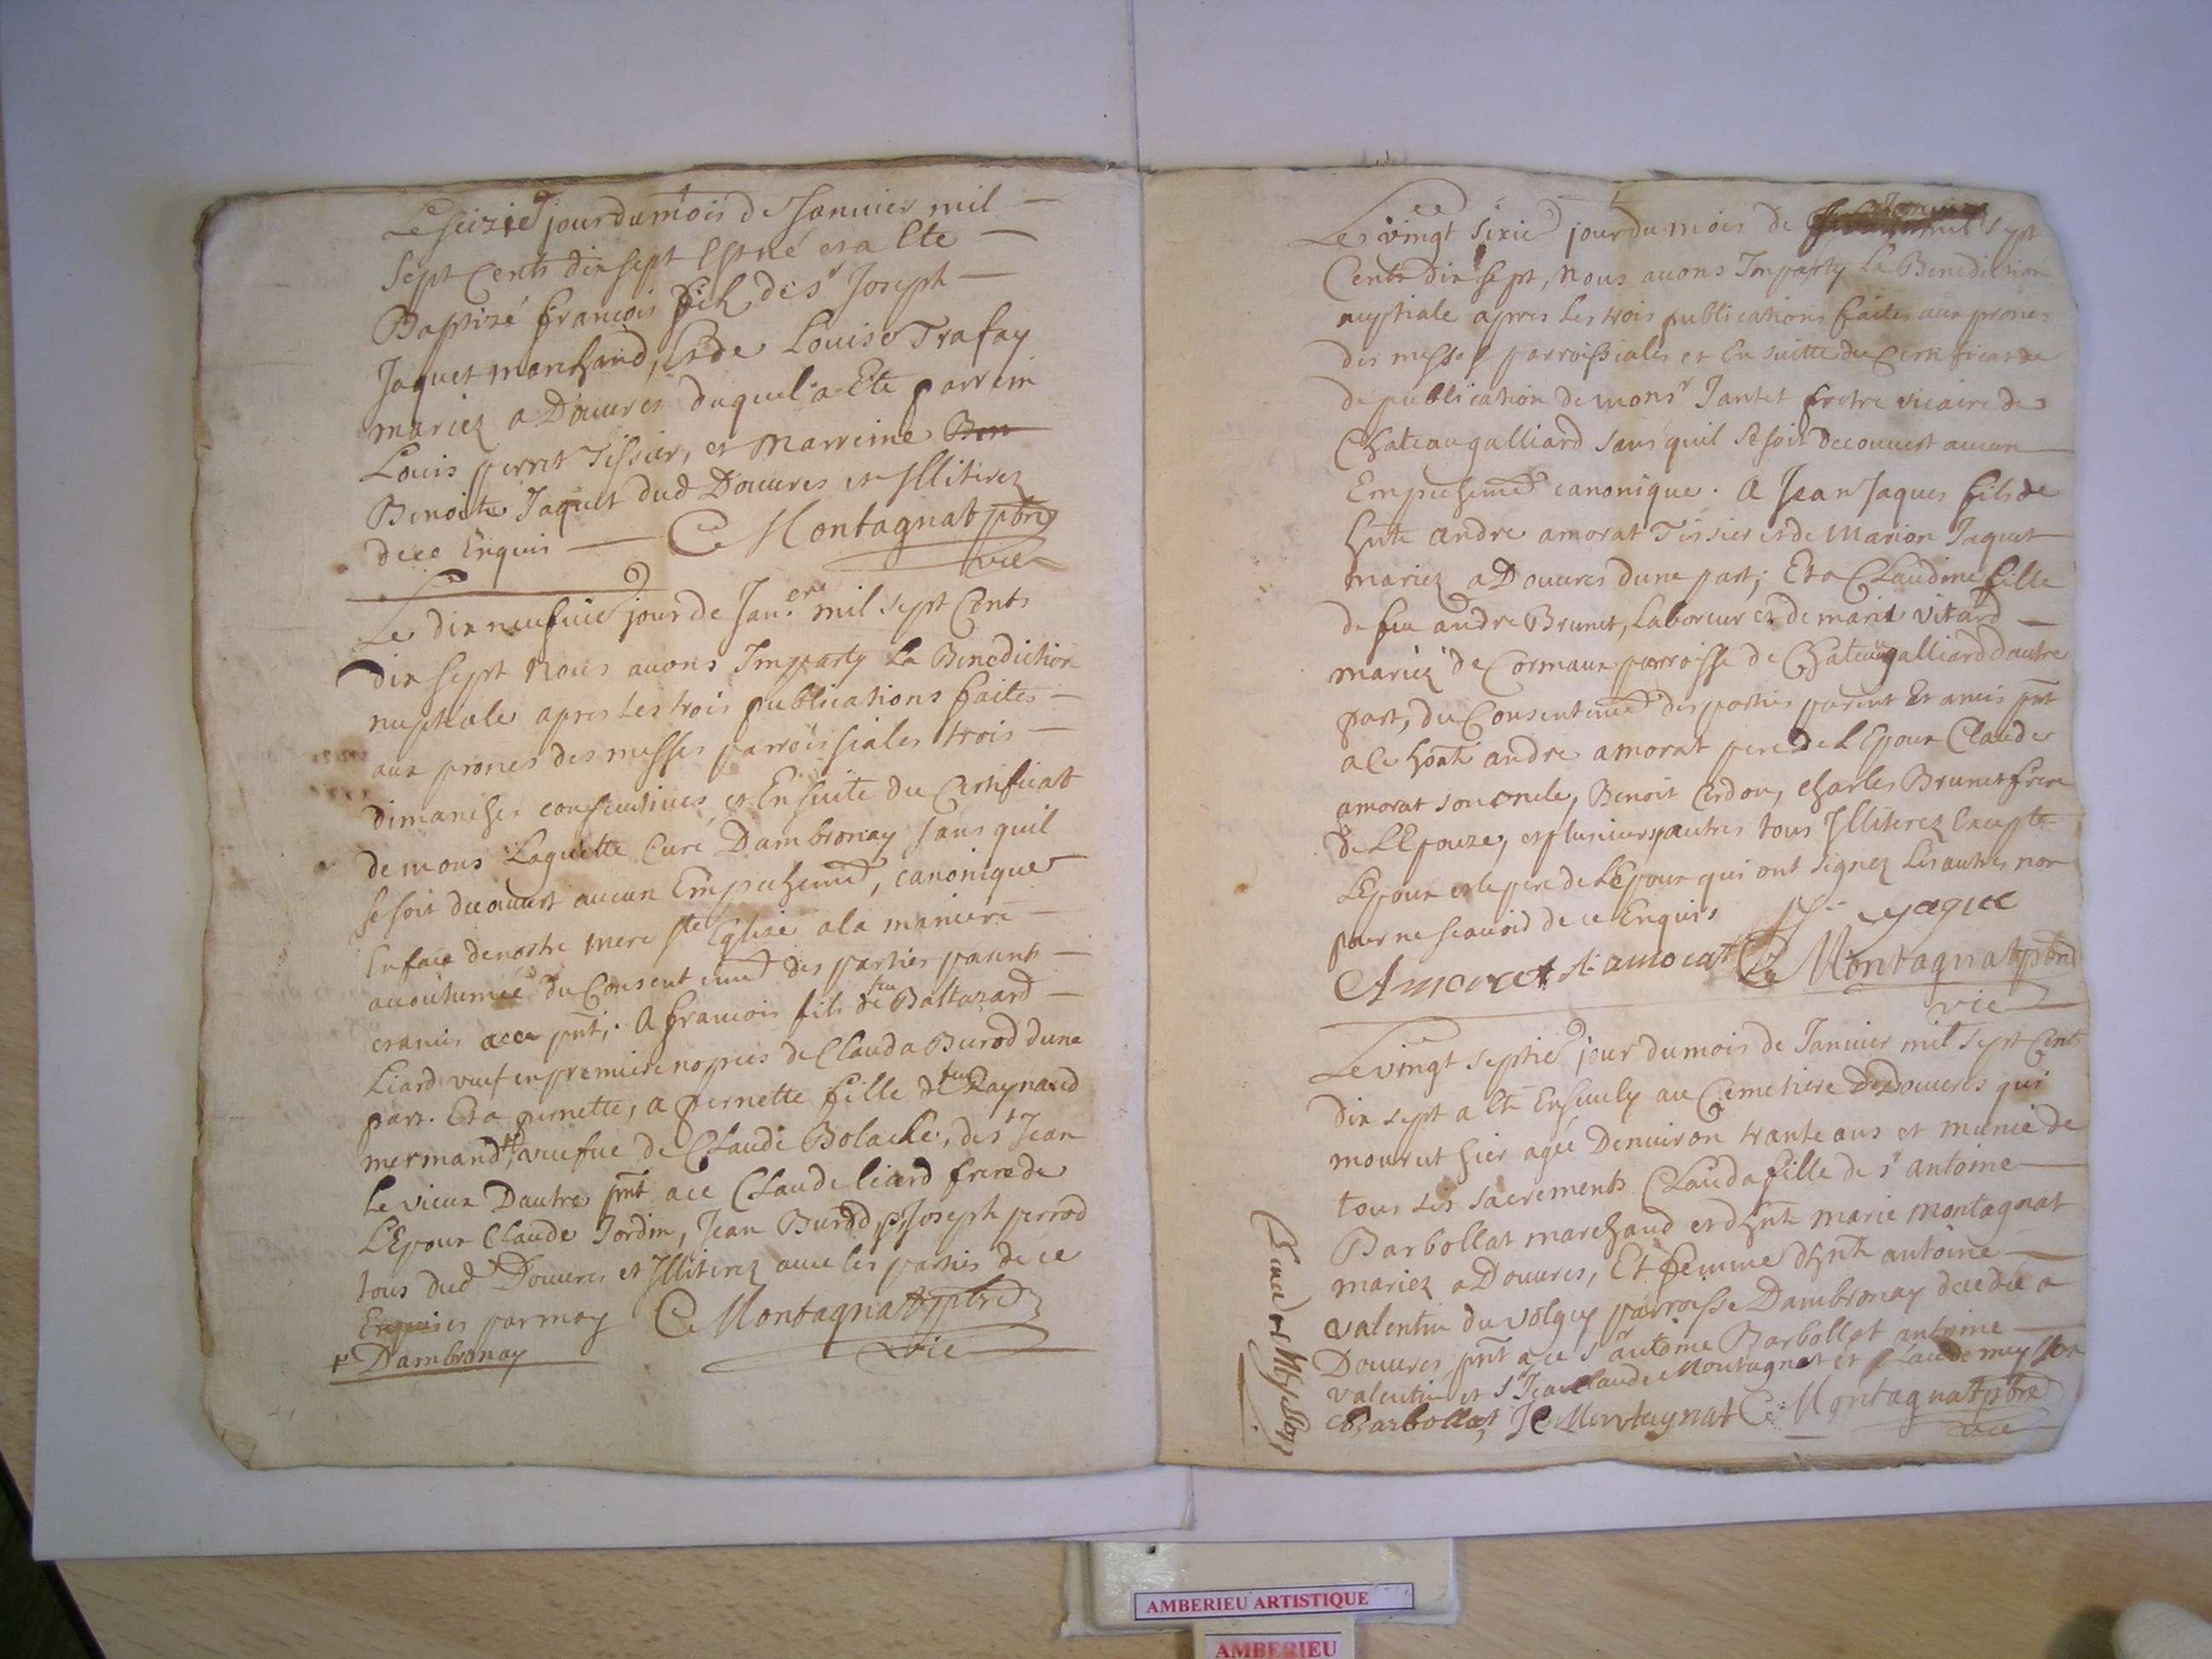 Le seizie jour du mois de Janvier mil
Sept Cents dix sept Est né et a Ete
Baptizé francois fils de sr Joseph
Jaquet marchand, Et de Louise Trafay
mariez a Douvres duquel a Ete parrein
Louis perret Tissier, et Marreine Ben
Benoite Jaquet dud Douvres et Illiterez
de ce Enquis C Montagnat pbre
vic
Le dix neufvie jour de Janer mil sept Cents
dix sept Nous avons Imparty La Benediction
nuptiale apres les trois publications faites
aux prones des messes parroissiales trois
dimanches consecutives, et En suite du Certificat
de mons Laguette Curé Dambronay sans quil
se soit decouvert aucun Empechemt, canonique
En face de nostre mere ste Eglise a la maniere
accoutumée du Consentemt des parties parents
et amis a ce pnt; A francois fils de feu Baltazard
Liard vuef en premiere nopces de Clauda Burod dune
part. Et a pernette, a pernette fille de feu Raynaud
mermand +, veufue de Claude Bolache, de st Jean
le vieux Dautre pnt a ce Claude liard frere de
LEpoux Claude Jordin, Jean Burod Joseph perrod
tous dud Douvres et Illiterez avec les parties de ce
Enquises par moy C Montagnat pbre
+ Dambronay vic
Le vingt sixie jour du mois de Janvier mil sept
Cents dix sept, Nous avons Imparty La Benediction
nuptiale apres Les trois publications faites aux prones
des messes parroissiales et En suitte du Certificat de
de publication de monsr Jantet pretre vicaire de
Chateaugalliard sans quil se soit decouvert aucun
Empechemt canonique. A Jean Jaques fils de
hnte andre amorat Tissier et de Marion Jaquet
mariez a Douvres dune part; Et a Claudine fille
de feu andre Brunet, Laboreur et de marie vitard
mariez de Cormaux parroisse de Chateaugalliard dautre
part, du Consentemt des parties parent Et amis pnt
a ce honte andre amorat pere de LEpoux Claude
amorat son oncle, Benoit Cerdon, charles Brunet frere
de LEpouze, et plusieurs autres tous Illiterez Excepte
LEpoux et le pere de LEpoux qui ont signez Les autres non
pour ne scavoir de ce Enquis
Amorat amorat C Montagnat pbre
vic
Le vingt septie jour du mois de Janvier mil sept Cent
dix sept a Ete Ensevely au Cemetiere De Douvres qui
mourut hier agée Denviron trante ans et munie de
tous ses sacrements Clauda fille de sr antoine
Barbollat marchand et dhnte marie montagnat
mariez a Douvres, Et femme dhnte antoine
valentin du volguy parroisse Dambronay decedée a
Douvres, pnt a ce sr antoine Barbollat antoine
valentin et sr Jean claude Montagnat et Claude
Barbollat, JC Montagnat C Montagnat pbre
vic